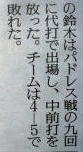 の鈴木はパドレス戦の九回
に代打で出場し、中前打を
放った。チームは4―5で
敗れた。